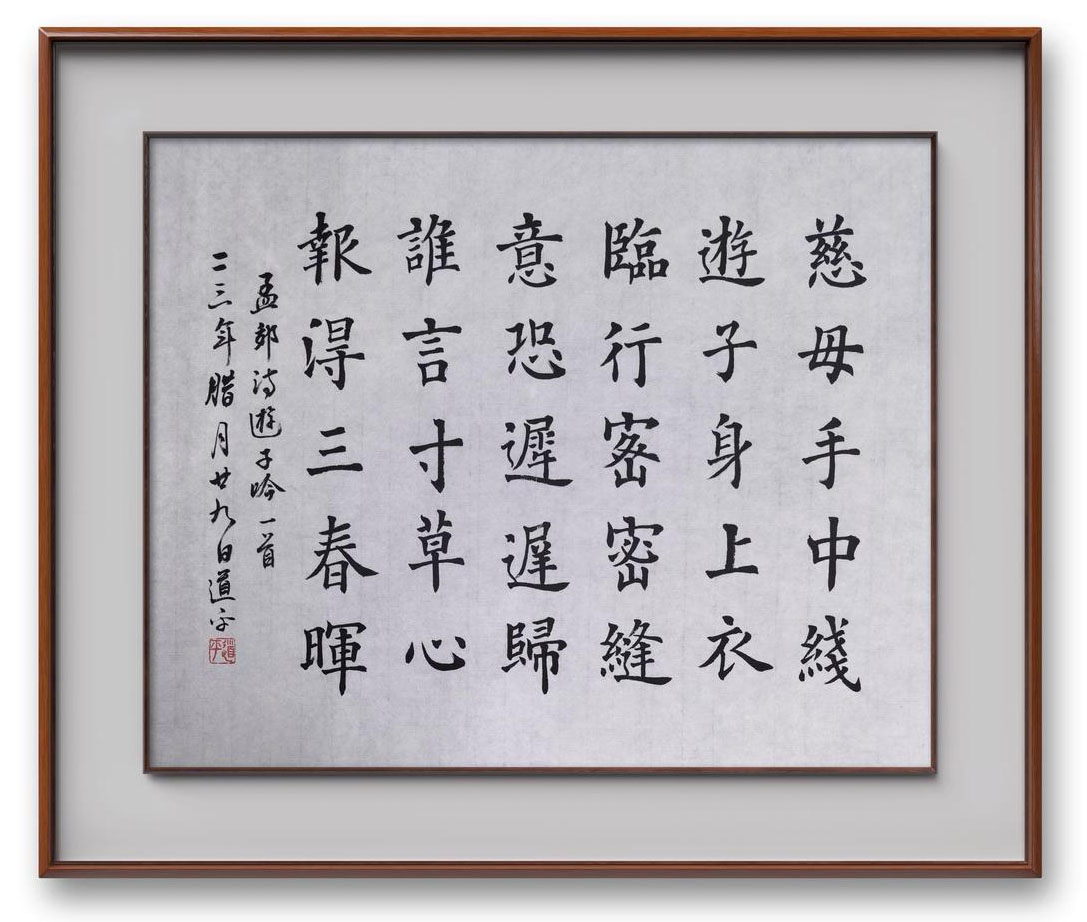 慈母手中綫
遊子身上衣
臨行密密縫
意恐遲遲歸
誰言寸草心
報得三春暉
孟郊詩遊子吟一首
二三年腊月廿九日道平
道平